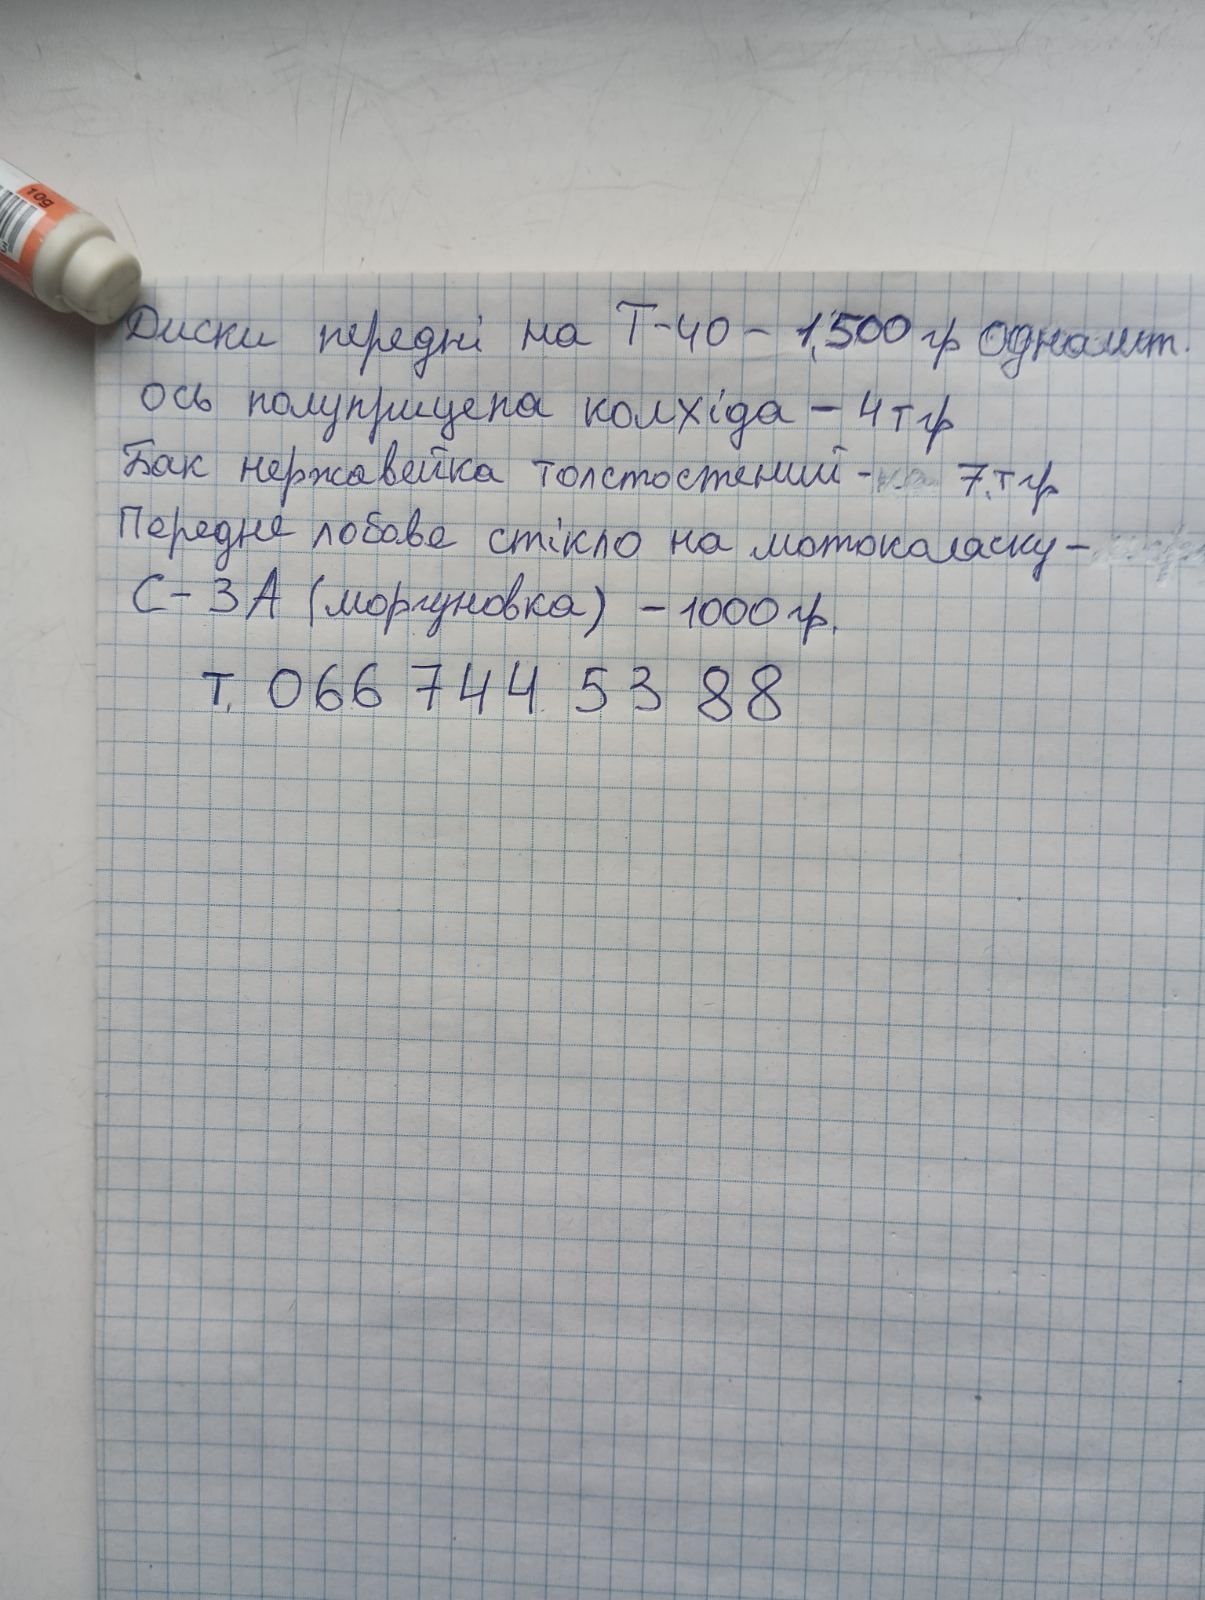 10g
Диски передні на Т-40 - 1,500 гр Одна шт.
ось полуприцепа колхіда - 4 т гр
Бак нержавейка толстостений - 7.т гр
Переднє лобове стікло на мотокаласку -
С-3А (моргуновка) - 1000 гр.
т. 066 744 53 88